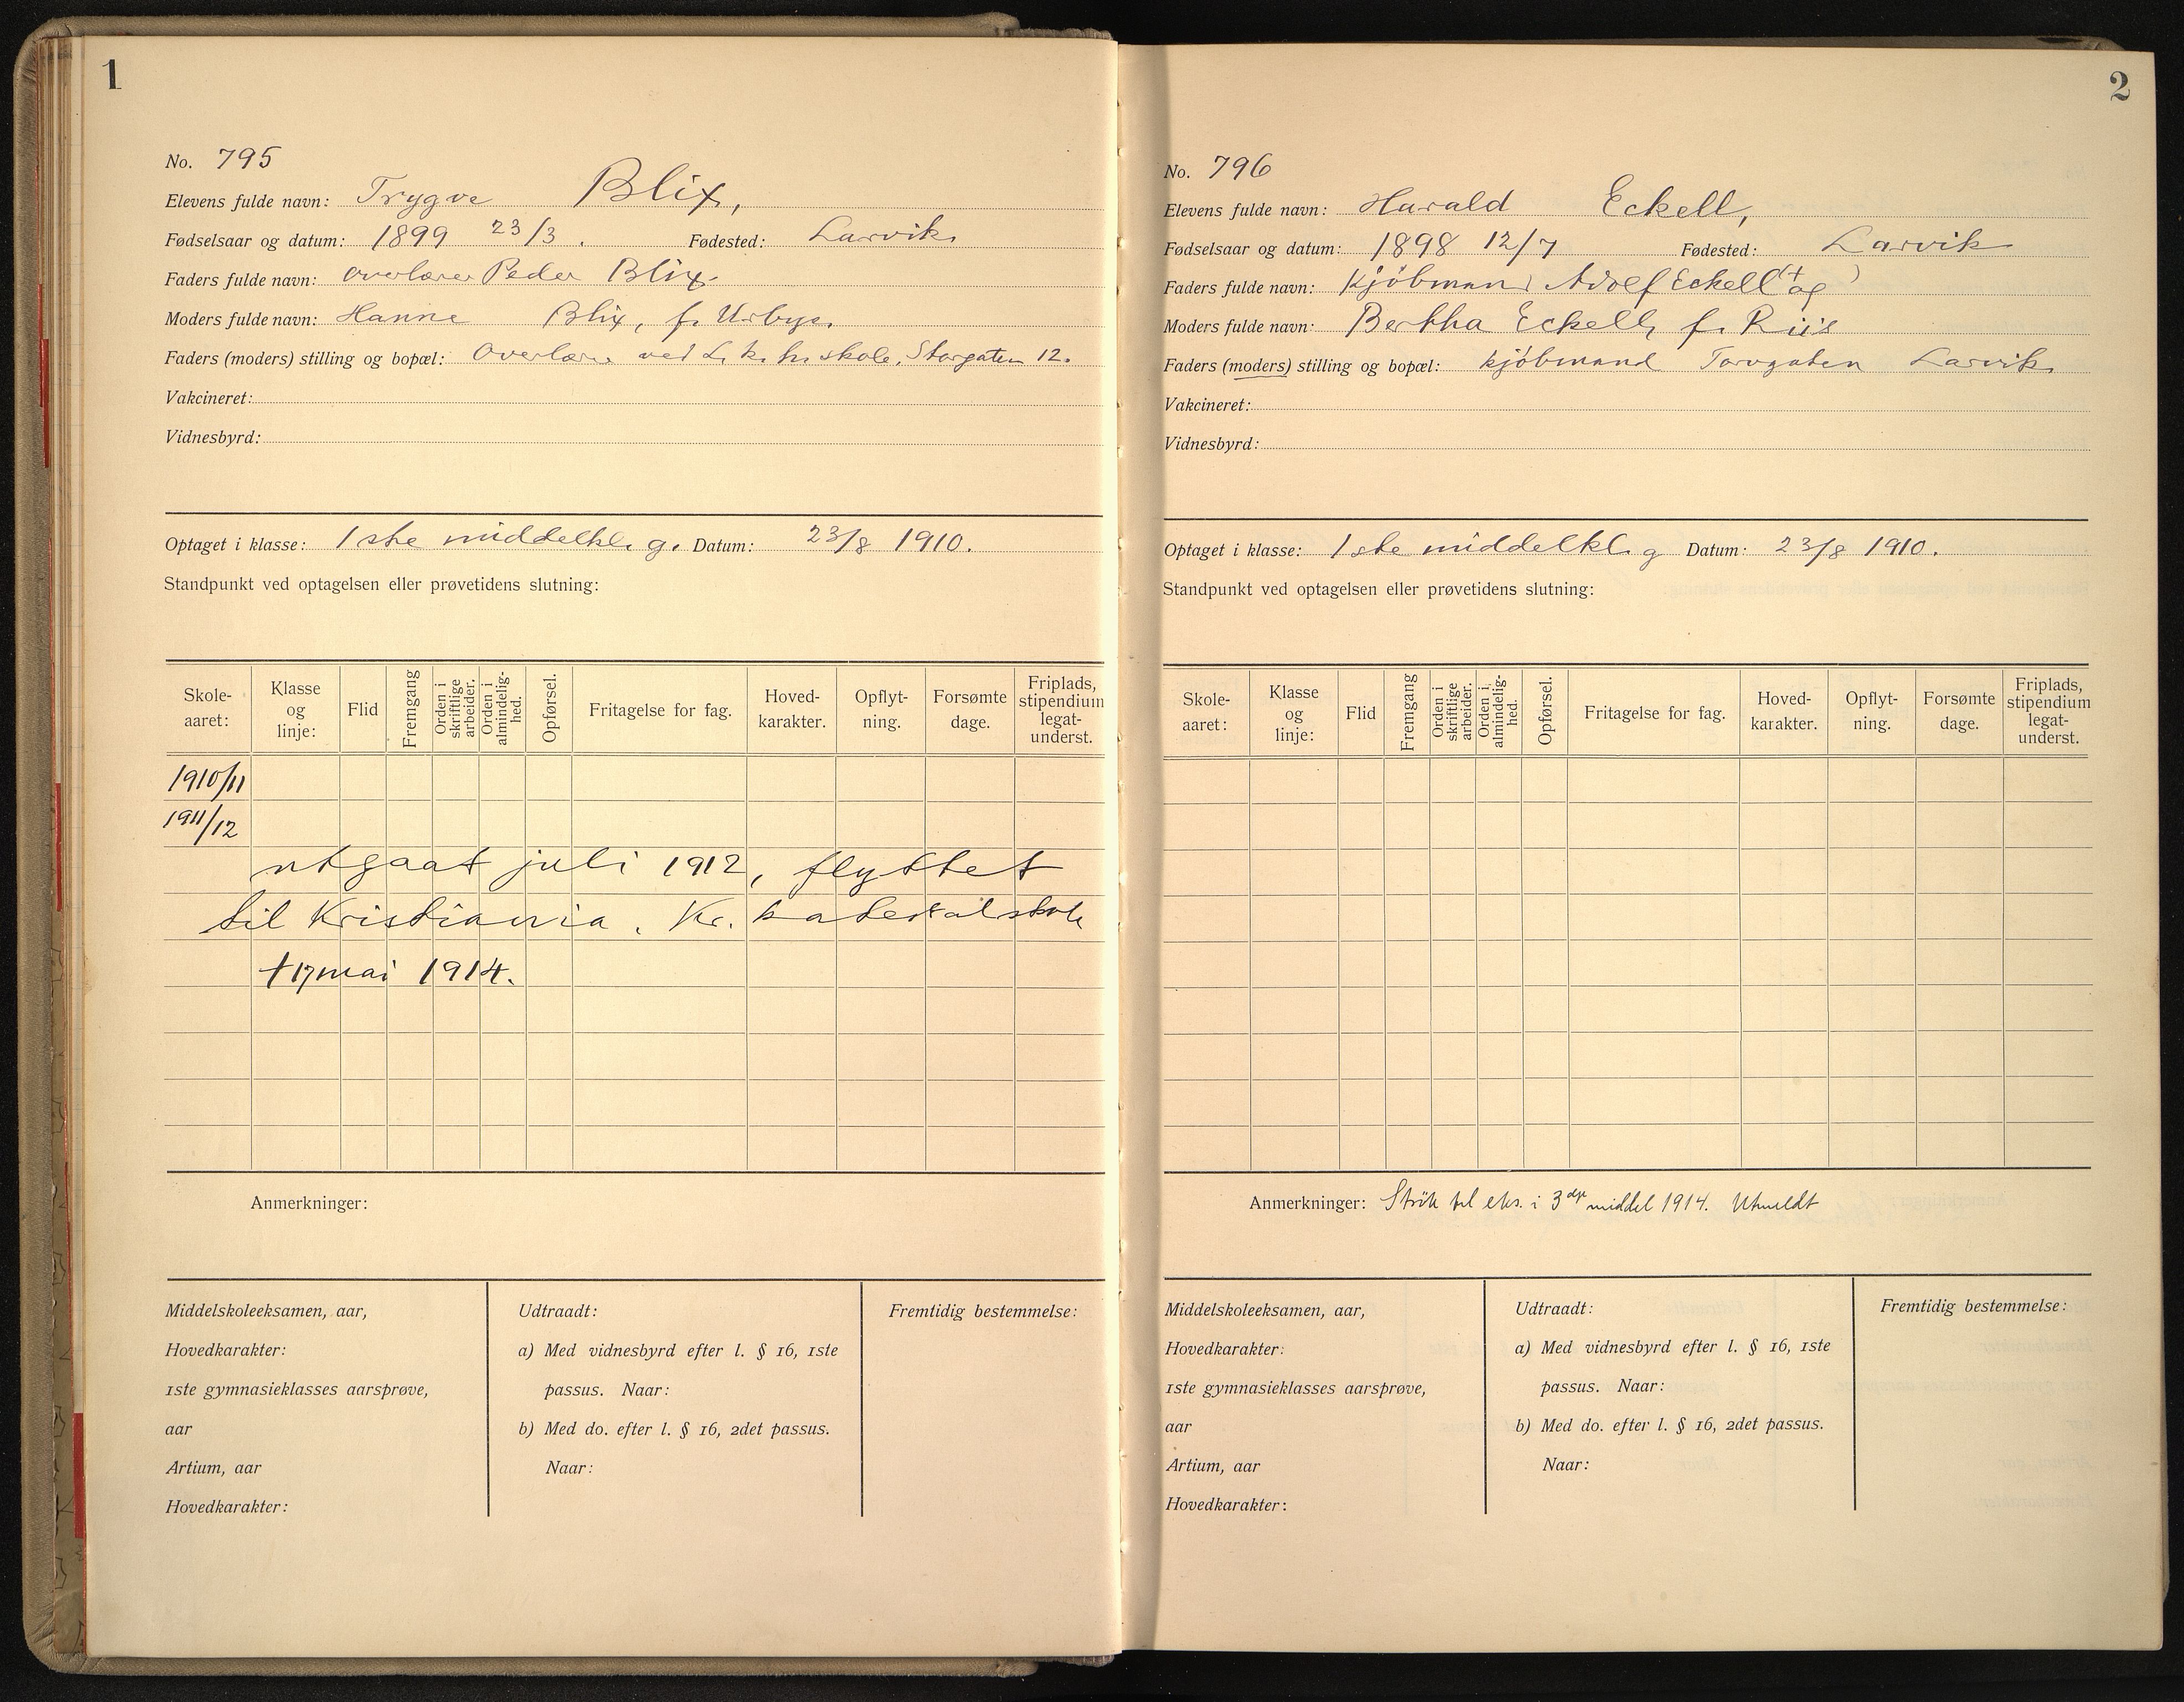 1
No. 795
Elevens fulde navn: Trygve Blix,
Fødselsaar og datum: 1899 23/3. Fødested: Larvik
Faders fulde navn: overlærer Peder Blix.
Moders fulde navn: Hanne Blix, f. Urbye.
Faders (moders) stilling og bopæl: Overlær. ved L. k. h. skole. Storgaten 12.
Vakcineret:
Vidnesbyrd:
Optaget i klasse: 1ste middelkl. g. Datum: 23/8 1910.
Standpunkt ved optagelsen eller prøvetidens slutning:
Skole-aaret: Klasse og linje: Flid Fremgang Orden i skriftlige arbeider. Orden i almindelig-hed. Opførsel. Fritagelse for fag. Hoved-karakter. Opflyt-ning. Forsømte dage. Friplads, stipendium legat-underst.
1910/11
1911/12
utgaat juli 1912, flyttet
til Kristiania. Kr. katedralskole
† 17 mai 1914.
Anmerkninger:
Middelskoleeksamen, aar,
Hovedkarakter:
1ste gymnasieklasses aarsprøve,
aar
Artium, aar
Hovedkarakter:
Udtraadt:
a) Med vidnesbyrd efter l. § 16, 1ste
passus. Naar:
b) Med do. efter l. § 16, 2det passus.
Naar:
Fremtidig bestemmelse:
2
No. 796
Elevens fulde navn: Harald Eckell,
Fødselsaar og datum: 1898 12/7 Fødested: Larvik
Faders fulde navn: Kjöbmand Adolf Eckell (†) og
Moders fulde navn: Bertha Eckell, f. Riis
Faders (moders) stilling og bopæl: kjöbmand Torvgaten Larvik
Vakcineret:
Vidnesbyrd:
Optaget i klasse: 1ste middelkl. g Datum: 23/8 1910.
Standpunkt ved optagelsen eller prøvetidens slutning:
Skole-aaret: Klasse og linje: Flid Fremgang Orden i skriftlige arbeider. Orden i almindelig-hed. Opførsel. Fritagelse for fag. Hoved-karakter. Opflyt-ning. Forsømte dage. Friplads, stipendium legat-underst.
Anmerkninger: Strök til eks. i 3dje middel 1914. Utmeldt
Middelskoleeksamen, aar,
Hovedkarakter:
1ste gymnasieklasses aarsprøve,
aar
Artium, aar
Hovedkarakter:
Udtraadt:
a) Med vidnesbyrd efter l. § 16, 1ste
passus. Naar:
b) Med do. efter l. § 16, 2det passus.
Naar:
Fremtidig bestemmelse: